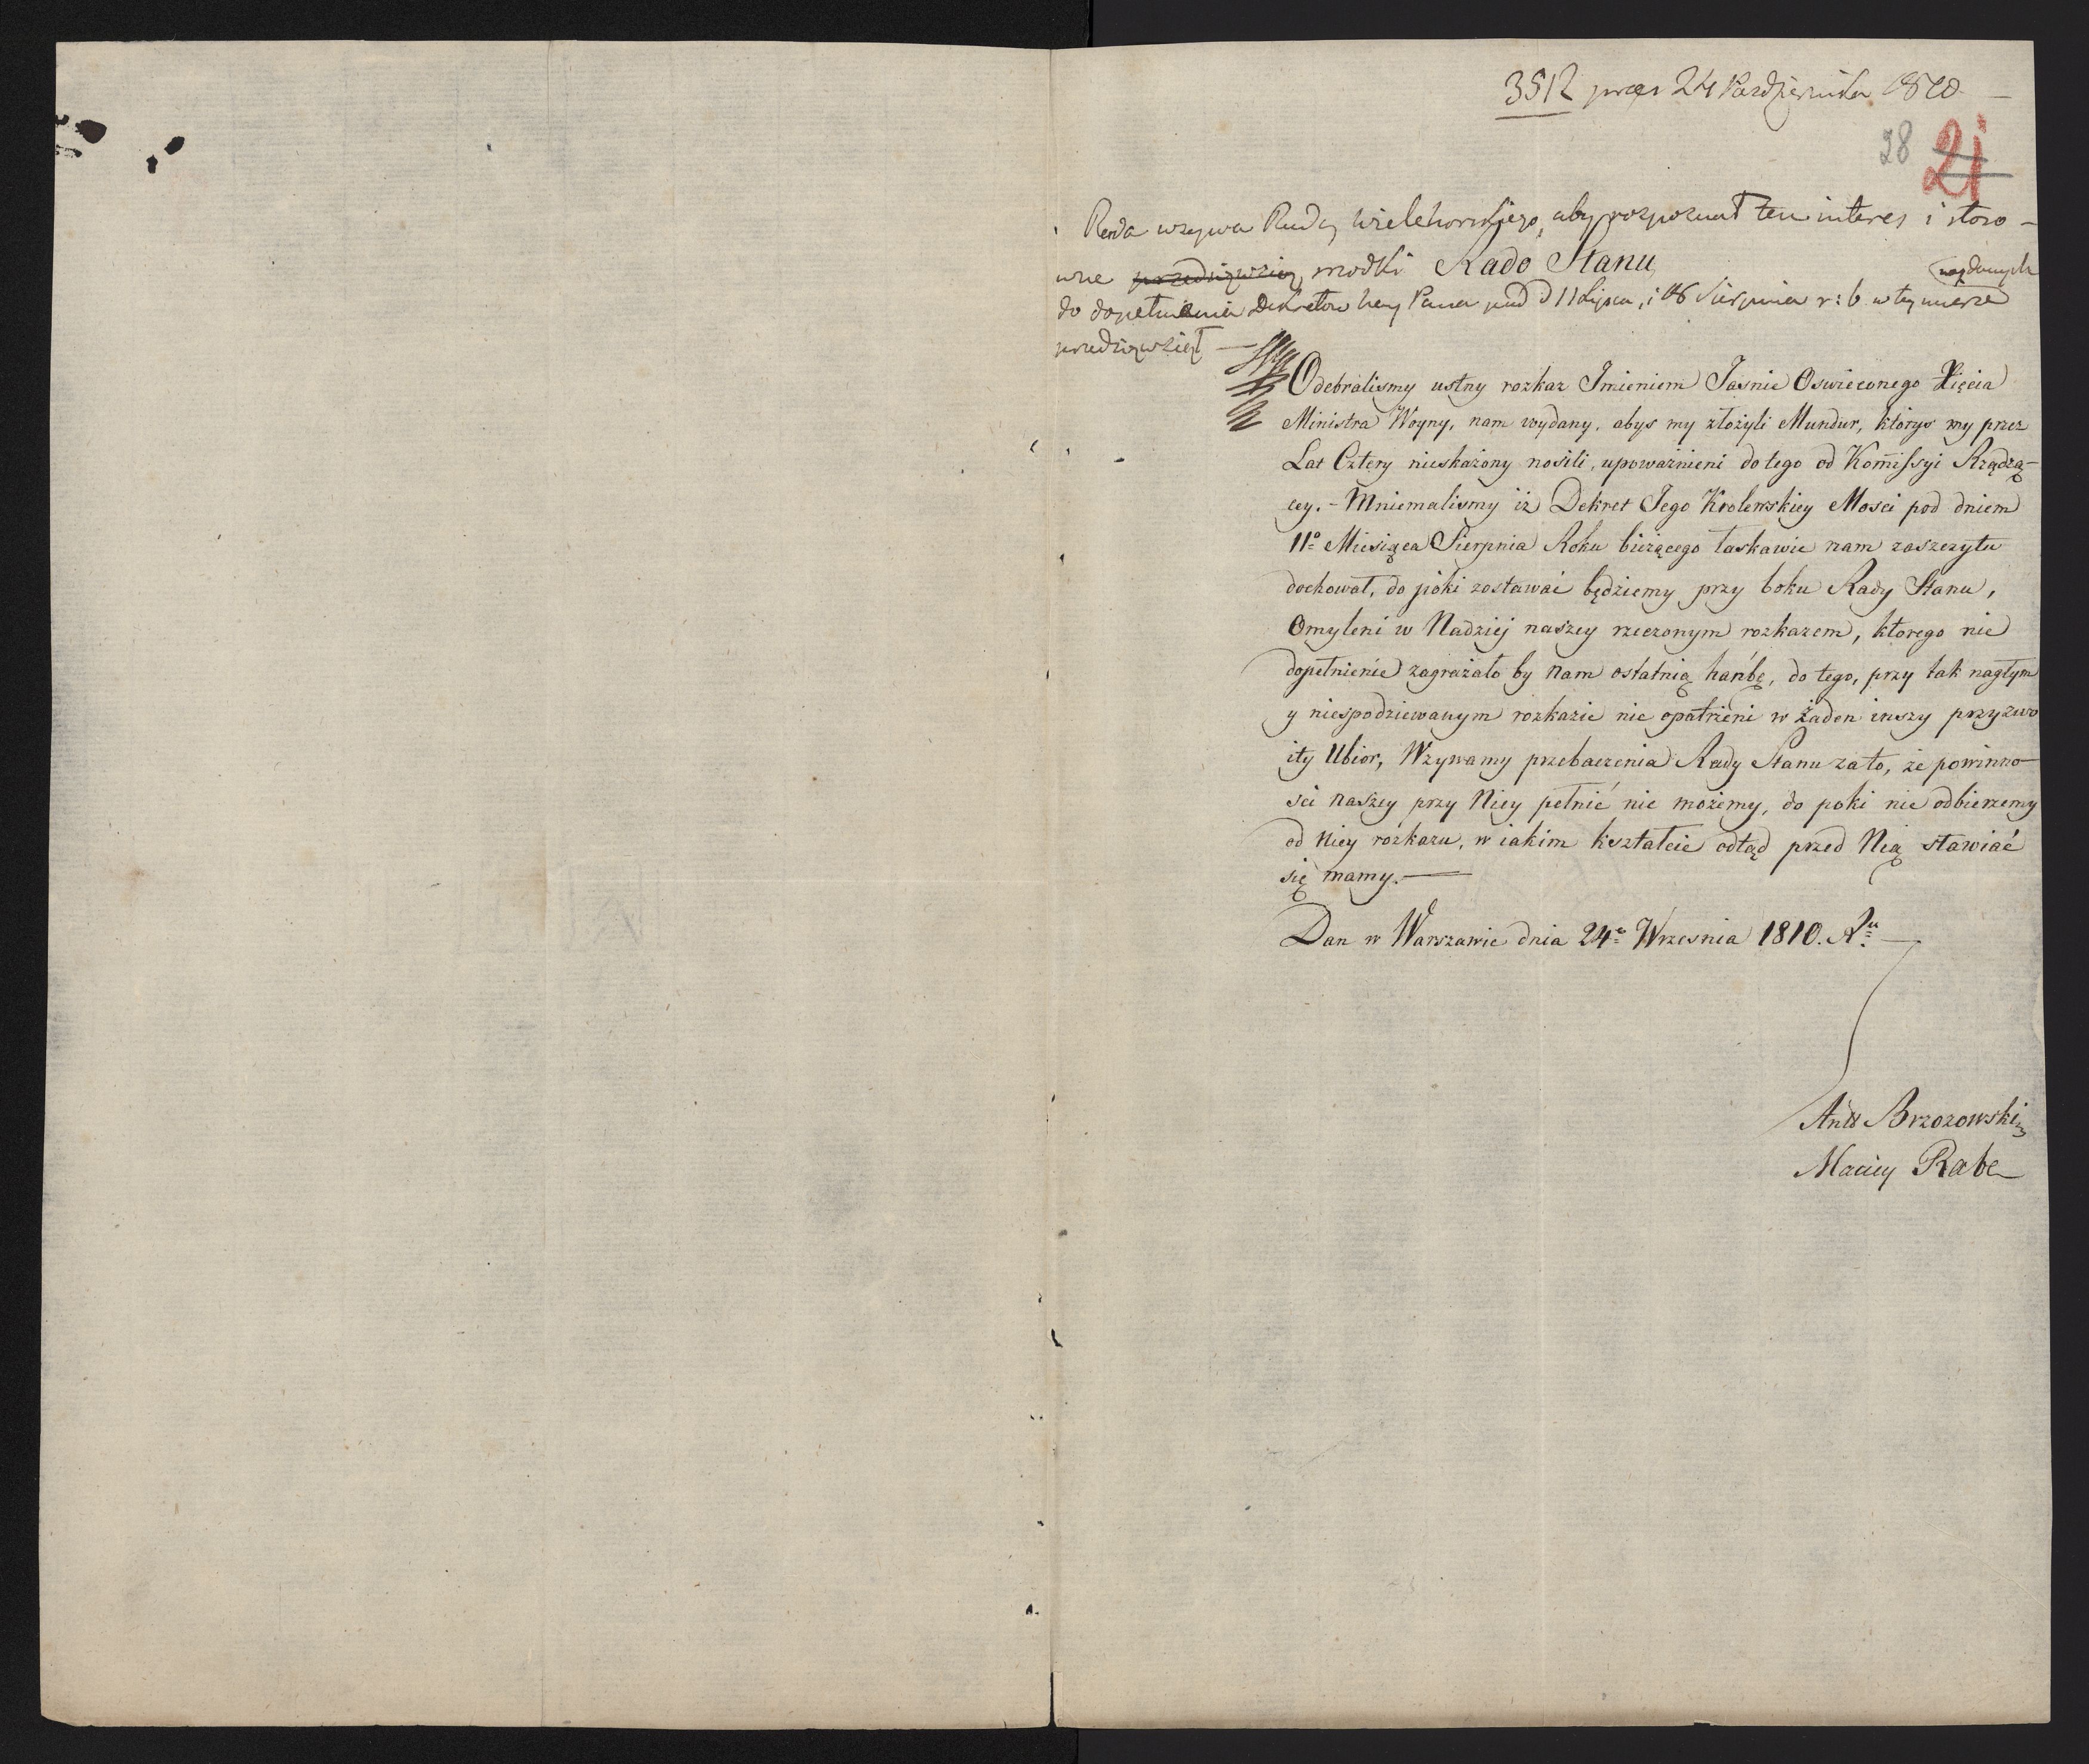 3512 prez 24 Października 1810
28 21
Rada wzywa Radcę Wielehorskiego, aby rozpoznał ten interes i stoso-
wne przedsięwziął srodki Rado Stanu
wydanych
do dopełnienia Dekretow Ney Pana pod d 11 Lipca, i 16 Sierpnia r: b w tey mierze
przedsięwziął —
Odebralismy ustny rozkaz Imieniem Jasnie Oswieconego Xięcia
Ministra Woyny, nam wydany, abys my złożyli Mundur, ktorys my przez
Lat Cztery nieskażony nosili, upoważnieni do tego od Komissyi Rządzą-
cey. - Mniemalismy iż Dekret Jego Krolewskiey Mosci pod dniem
11o Miesiąca Sierpnia Roku bieżącego łaskawie nam zaszczytu
dochował, do póki zostawać będziemy przy boku Rady Stanu,
Omyleni w Nadziej naszey rzeczonym rozkazem, ktorego nie
dopełnienie zagrażało by nam ostatnią hańbą, do tego, przy tak nagłym
y niespodziewanym rozkazie nie opatrzeni w żaden inszy przyzwo
ity Ubior, Wzywamy przebaczenia Rady Stanu za to, że powinno-
sci naszey przy Niey pełnić nie możemy, do poki nie odbierzemy
od Niey rozkazu, w iakim kształcie odtąd przed Nią stawiać
się mamy. —
Dan w Warszawie dnia 24o Wrzesnia 1810. Ru —
Brzozowski
Maciey Rabe